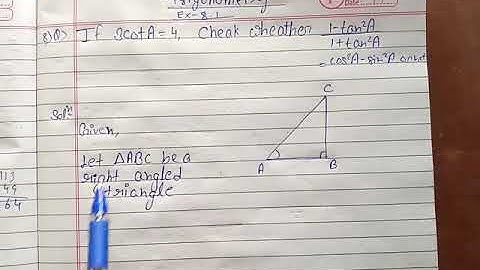 Trigonometry
Ex-8.1
8)Q) If 3cotA=4, Cheak wheather 1-tan²A
1+tan²A
=cos²A-sin²A or not
Solⁿ
Given,
Let △ABC be a
right angled
triangle
C
A
B
113
49
64